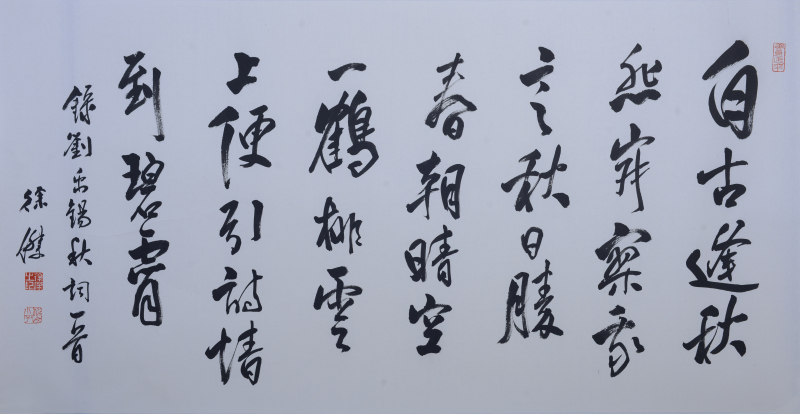 自古逢秋
悲寂寥我
言秋日勝
春朝晴空
一鶴排雲
上便引詩情
到碧霄
錄劉禹錫秋詞一首
徐傑